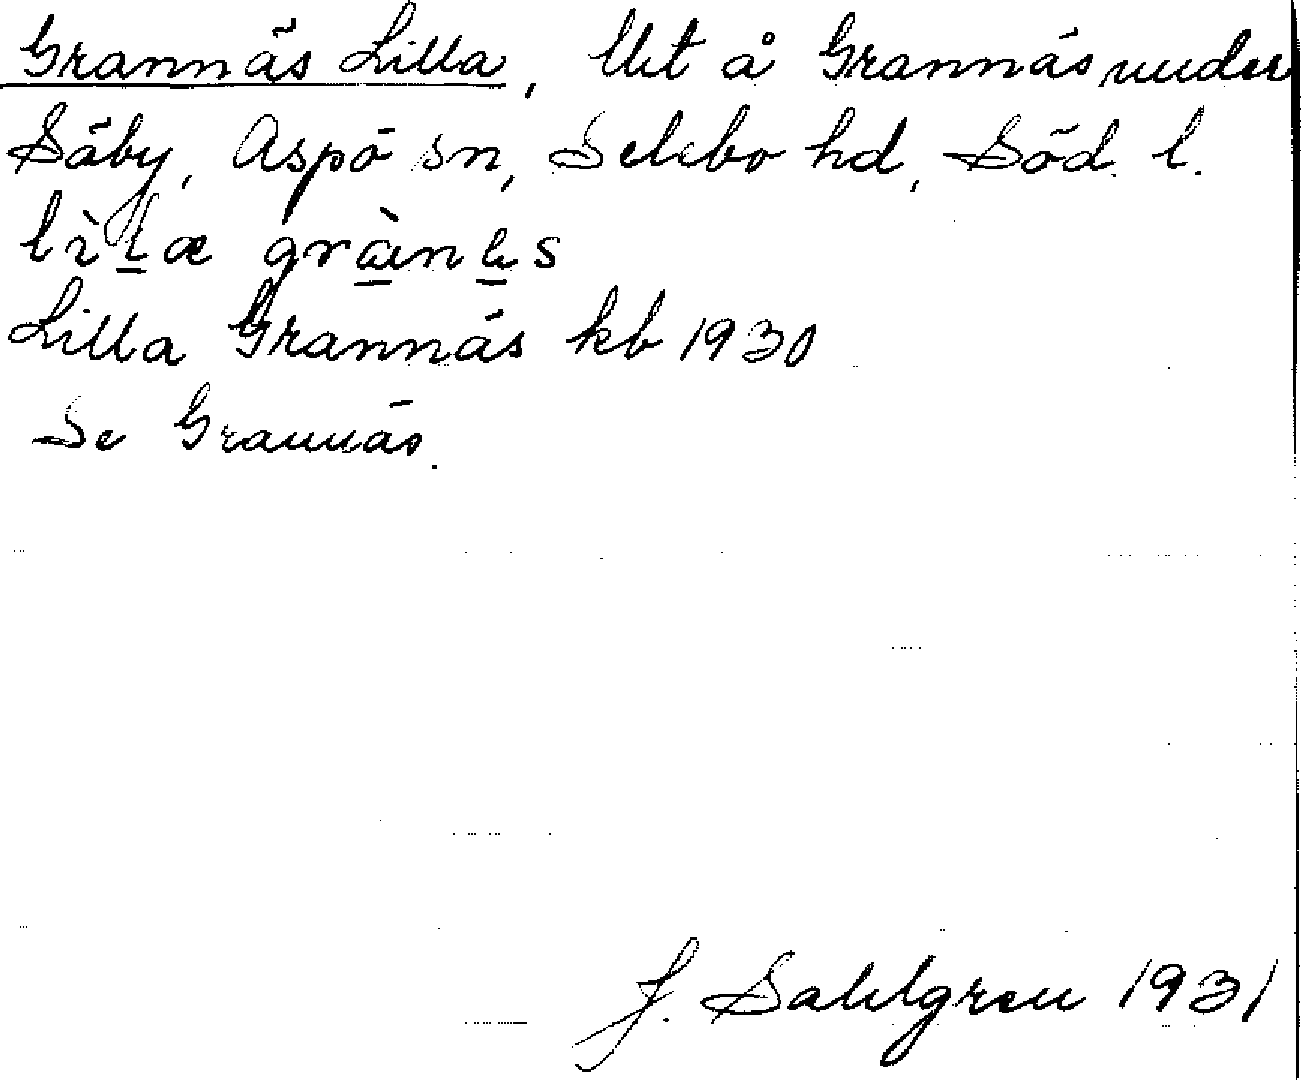 Grannäs Lilla, Uet å Grannäs under
Säby, Aspö sn, Selebo hd, Söd. l.
Lilla Grannäs kb 1930
Se Grannäs.
J. Sahlgren 1931